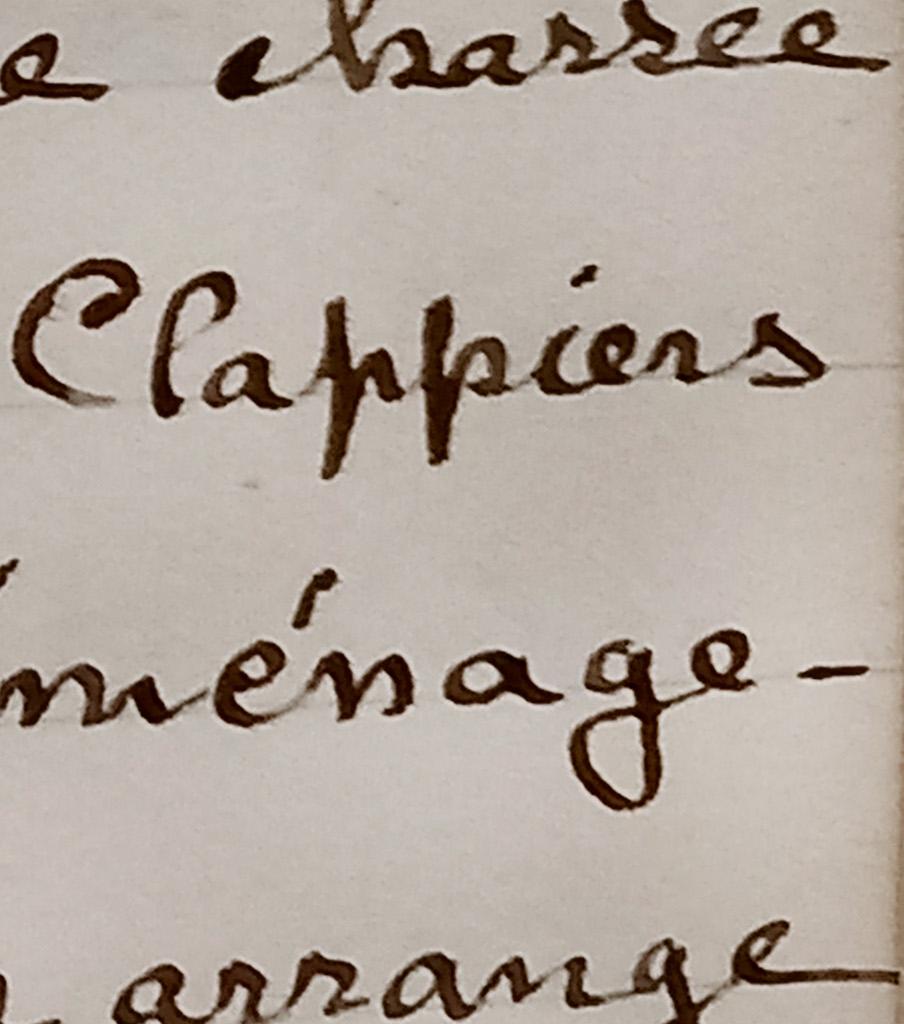 e chassée
Clappiers
ménage-
arrange